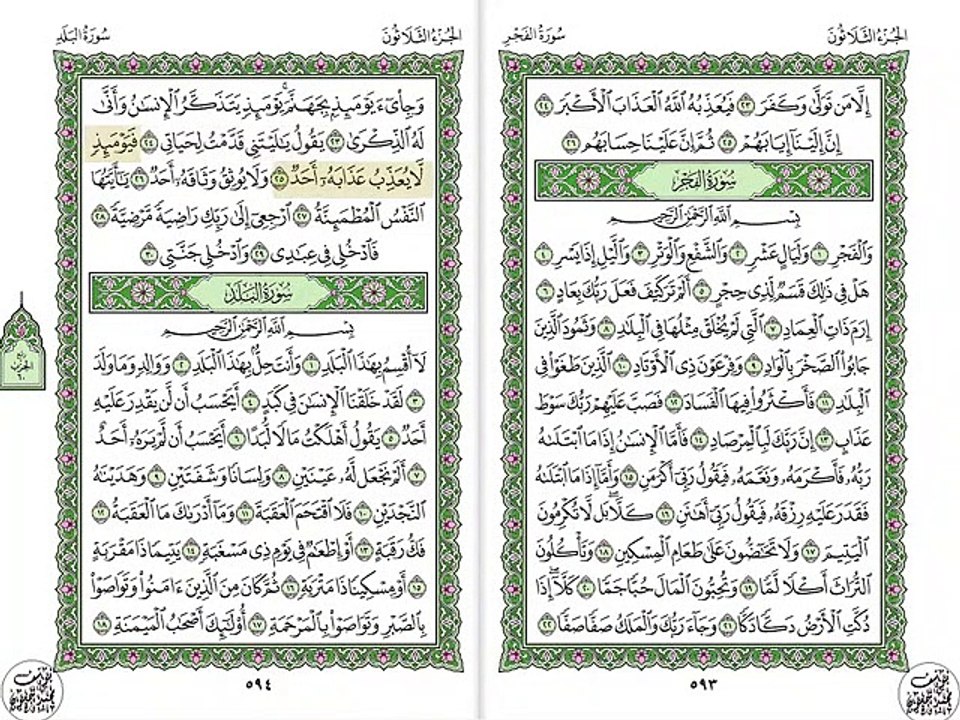 الجزء الثلاثون
سورة الفجر
إِلَّا مَن تَوَلَّىٰ وَكَفَرَ ٢٣ فَيُعَذِّبُهُ اللَّهُ الْعَذَابَ الْأَكْبَرَ ٢٤
إِنَّ إِلَيْنَا إِيَابَهُمْ ٢٥ ثُمَّ إِنَّ عَلَيْنَا حِسَابَهُم ٢٦
سُورَةُ الفَجْرِ
بِسْمِ اللَّهِ الرَّحْمَٰنِ الرَّحِيمِ
وَالْفَجْرِ ١ وَلَيَالٍ عَشْرٍ ٢ وَالشَّفْعِ وَالْوَتْرِ ٣ وَاللَّيْلِ إِذَا يَسْرِ ٤
هَلْ فِي ذَٰلِكَ قَسَمٌ لِّذِي حِجْرٍ ٥ أَلَمْ تَرَ كَيْفَ فَعَلَ رَبُّكَ بِعَادٍ ٦
إِرَمَ ذَاتِ الْعِمَادِ ٧ الَّتِي لَمْ يُخْلَقْ مِثْلُهَا فِي الْبِلَادِ ٨ وَثَمُودَ الَّذِينَ
جَابُوا الصَّخْرَ بِالْوَادِ ٩ وَفِرْعَوْنَ ذِي الْأَوْتَادِ ١٠ الَّذِينَ طَغَوْا فِي
الْبِلَادِ ١١ فَأَكْثَرُوا فِيهَا الْفَسَادَ ١٢ فَصَبَّ عَلَيْهِمْ رَبُّكَ سَوْطَ
عَذَابٍ ١٣ إِنَّ رَبَّكَ لَبِالْمِرْصَادِ ١٤ فَأَمَّا الْإِنسَانُ إِذَا مَا ابْتَلَاهُ
رَبُّهُ فَأَكْرَمَهُ وَنَعَّمَهُ فَيَقُولُ رَبِّي أَكْرَمَنِ ١٥ وَأَمَّا إِذَا مَا ابْتَلَاهُ
فَقَدَرَ عَلَيْهِ رِزْقَهُ فَيَقُولُ رَبِّي أَهَانَنِ ١٦ كَلَّا بَل لَّا تُكْرِمُونَ
الْيَتِيمَ ١٧ وَلَا تَحَاضُّونَ عَلَىٰ طَعَامِ الْمِسْكِينِ ١٨ وَتَأْكُلُونَ
التُّرَاثَ أَكْلًا لَّمًّا ١٩ وَتُحِبُّونَ الْمَالَ حُبًّا جَمًّا ٢٠ كَلَّا إِذَا
دُكَّتِ الْأَرْضُ دَكًّا دَكًّا ٢١ وَجَاءَ رَبُّكَ وَالْمَلَكُ صَفًّا صَفًّا ٢٢
٥٩٣
الجزء الثلاثون
سورة البلد
وَجِايءَ يَوْمَئِذٍ بِجَهَنَّمَ يَوْمَئِذٍ يَتَذَكَّرُ الْإِنسَانُ وَأَنَّىٰ
لَهُ الذِّكْرَىٰ ٢٣ يَقُولُ يَالَيْتَنِي قَدَّمْتُ لِحَيَاتِي ٢٤ فَيَوْمَئِذٍ
لَّا يُعَذِّبُ عَذَابَهُ أَحَدٌ ٢٥ وَلَا يُوثِقُ وَثَاقَهُ أَحَدٌ ٢٦ يَاأَيَّتُهَا
النَّفْسُ الْمُطْمَئِنَّةُ ٢٧ ارْجِعِي إِلَىٰ رَبِّكِ رَاضِيَةً مَّرْضِيَّةً ٢٨
فَادْخُلِي فِي عِبَادِي ٢٩ وَادْخُلِي جَنَّتِي ٣٠
سُورَةُ البَلَدِ
بِسْمِ اللَّهِ الرَّحْمَٰنِ الرَّحِيمِ
لَا أُقْسِمُ بِهَٰذَا الْبَلَدِ ١ وَأَنتَ حِلٌّ بِهَٰذَا الْبَلَدِ ٢ وَوَالِدٍ وَمَا وَلَدَ
٣ لَقَدْ خَلَقْنَا الْإِنسَانَ فِي كَبَدٍ ٤ أَيَحْسَبُ أَن لَّن يَقْدِرَ عَلَيْهِ
أَحَدٌ ٥ يَقُولُ أَهْلَكْتُ مَالًا لُّبَدًا ٦ أَيَحْسَبُ أَن لَّمْ يَرَهُ أَحَدٌ
٧ أَلَمْ نَجْعَل لَّهُ عَيْنَيْنِ ٨ وَلِسَانًا وَشَفَتَيْنِ ٩ وَهَدَيْنَاهُ
النَّجْدَيْنِ ١٠ فَلَا اقْتَحَمَ الْعَقَبَةَ ١١ وَمَا أَدْرَاكَ مَا الْعَقَبَةُ ١٢
فَكُّ رَقَبَةٍ ١٣ أَوْ إِطْعَامٌ فِي يَوْمٍ ذِي مَسْغَبَةٍ ١٤ يَتِيمًا ذَا مَقْرَبَةٍ
١٥ أَوْ مِسْكِينًا ذَا مَتْرَبَةٍ ١٦ ثُمَّ كَانَ مِنَ الَّذِينَ آمَنُوا وَتَوَاصَوْا
بِالصَّبْرِ وَتَوَاصَوْا بِالْمَرْحَمَةِ ١٧ أُولَٰئِكَ أَصْحَابُ الْمَيْمَنَةِ ١٨
ربع
الحزب
٦٠
٥٩٤